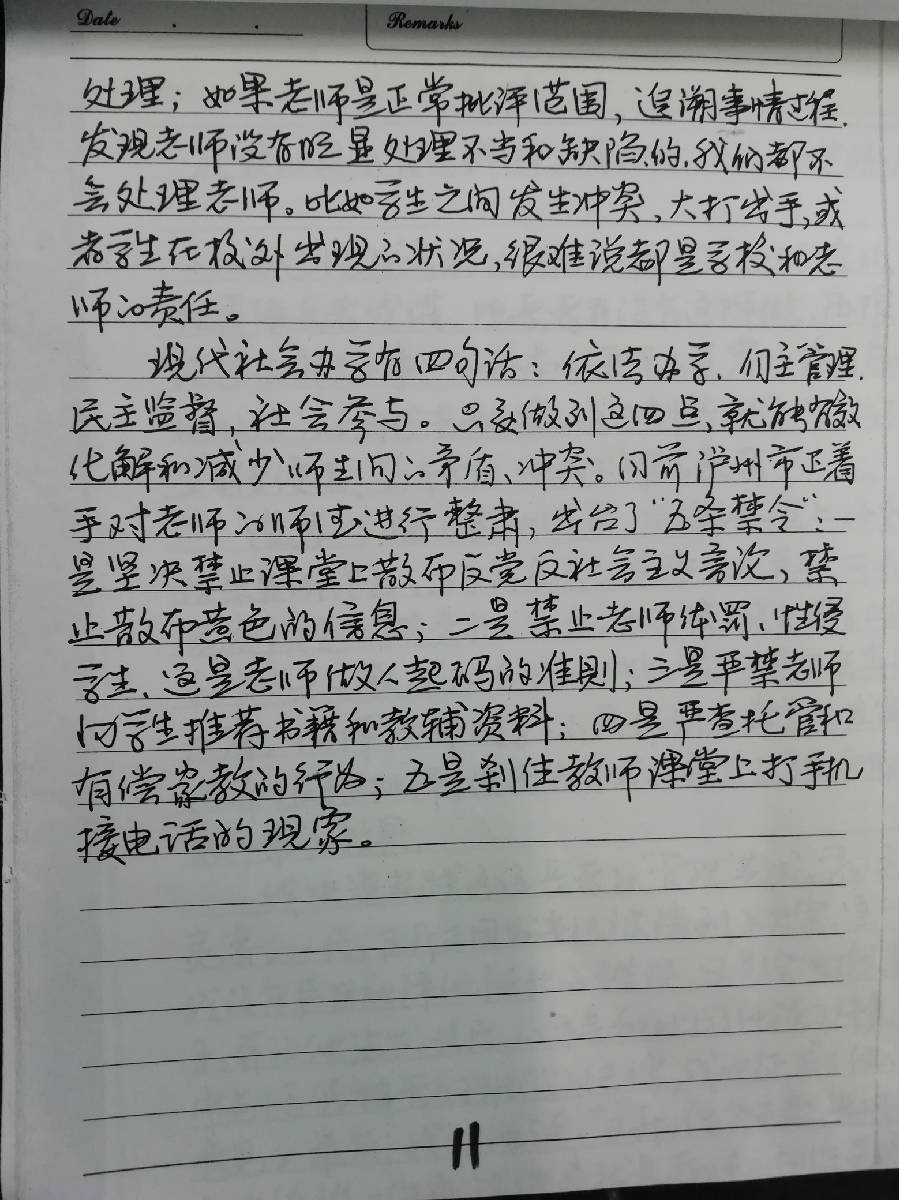 Date . .
Remarks
处理；如果老师是正常批评范围，追溯事情过程，
发现老师没有明显处理不当和缺陷的，我们都不
会处理老师。比如学生之间发生冲突、大打出手，或
者学生在校外出现的状况，很难说都是学校和老
师的责任。
现代社会办学有四句话：依法办学、自主管理、
民主监督，社会参与。只要做到这四点，就能有效
化解和减少师生间的矛盾、冲突。目前泸州市正着
手对老师的师德进行整肃，出台了“五条禁令”：一
是坚决禁止课堂上散布反党反社会主义言论、禁
止散布黄色的信息；二是禁止老师体罚、性侵
学生，这是老师做人起码的准则；三是严禁老师
向学生推荐书籍和教辅资料；四是严查托管和
有偿家教的行为；五是刹住教师课堂上打手机
接电话的现象。
11